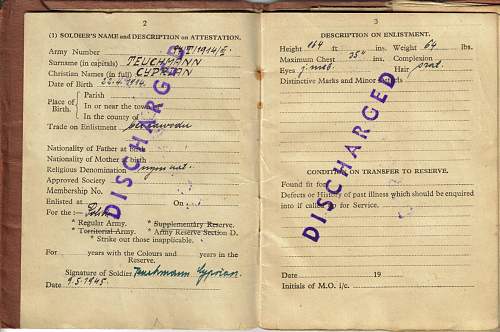 2
(1) SOLDIER'S NAME and DESCRIPTION on ATTESTATION.
Army Number
Surname (in capitals) TEUCHMANN
Christian Names (in full) CYPRIAN
Date of Birth 26.4.1914.
Place of Birth.
Parish
In or near the town
In the county of
Trade on Enlistment
Nationality of Father at birth
Nationality of Mother at birth
Religious Denomination rzym kat.
Approved Society
Membership No.
Enlisted at On
For the :— Polish
* Regular Army. * Supplementary Reserve.
* Territorial Army. * Army Reserve Section D.
* Strike out those inapplicable.
For years with the Colours and years in the
Reserve.
Signature of Soldier Teuchmann Cyprian
Date 9.5.1945.
DISCHARGED
3
DESCRIPTION ON ENLISTMENT.
Height 164 ft ins. Weight 64 lbs.
Maximum Chest 35" ins. Complexion
Eyes j. nieb. Hair szat.
Distinctive Marks and Minor
CONDITION ON TRANSFER TO RESERVE.
Found fit for
Defects or History of past illness which should be enquired
into if called up for Service.
Date 19
Initials of M.O. i/c.
DISCHARGED